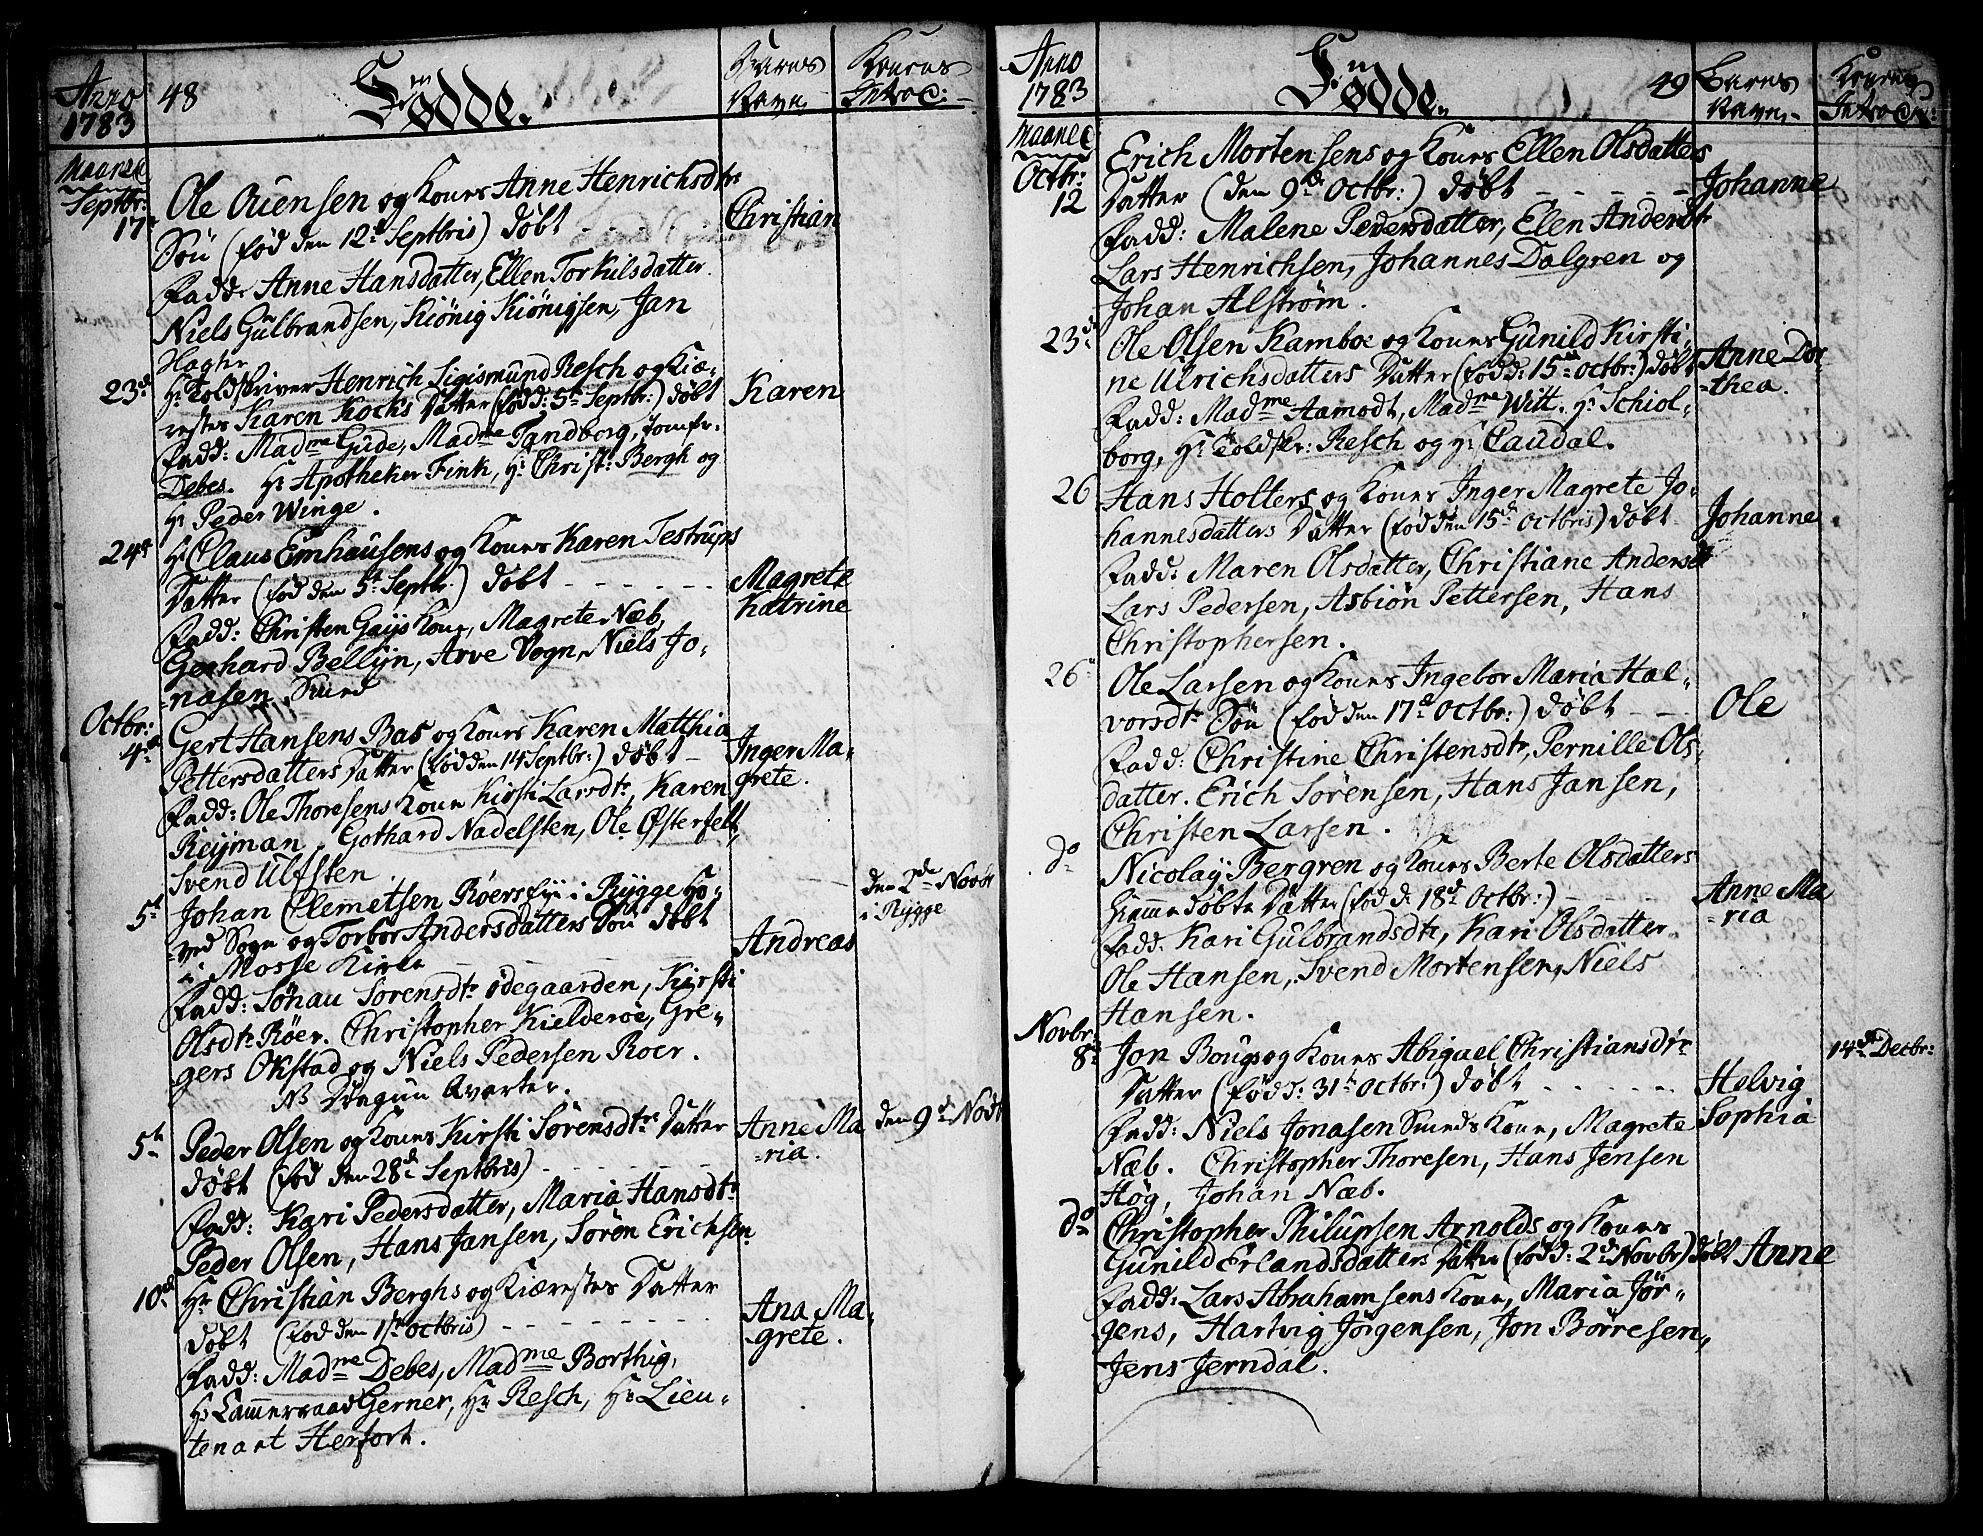 Anno
1783
48
Fødde.
Barnes
Navn
Konens
Introd:
Maanet
Septbr:
17
Ole Ouensen og Kones Anne Henrichsdtrs
Søn (fød den 12te Septbris) døbt - - - -
Christian
Fadd: Anne Hansdatter, Ellen Torkilsdatter
Niels Gulbrandsen, Kiönig Kiönigsen, Jan
Hagtr
23de
Hr: Toldskriver Henrich Sigismund Resch og Kiæ-
restes Karen Kocks Datter (fød d: 5te Septbr:) døbt
Karen
Fadd: Madme Gude, Madme Tandborg, Jomfr.
Debes. Hr Apotheker Fink, Hr: Christ: Bergh og
Hr Peder Winge.
24de
Hr Claus Emhausens og Kones Karen Testrups
Datter (fød den 5te Septbr:) døbt - - - - - -
Magrete
Katrine
Fadd: Christen Gays Kone, Magrete Næb,
Gerhard Bellijn, Arve Vogn, Niels Jo-
nasen Smed
Octbr:
4de
Gert Hansens Bas og Kones Karen Matthia
Pettersdatters Datter (fød den 14 Septbr:) døbt -
Inger Ma-
grete.
Fadd: Ole Thoresens Kone Kirsti Larsdtr, Karen
Reijman, Gothard Nadelsten, Ole Østerfelt,
Svend Ulfsten
5te
Johan Clemetsen Røers fyi i Rygge Ho-
ved Sogn og Torbor Andersdatters Søn døbt
i Mosse Kirke - - - -
Andreas
den 2de Novbr
i Rygge
Fadd: Sønau Sørensdtr ødegaarden, Kirsti
Olsdtr Røer. Christopher Kielderøe, Gre-
gers Okstad og Niels Pedersen Roer.
NB Dragun Qvarter.
5te
Peder Olsen og Kones Kirsti Sørensdtrs Datter
døbt (fød den 28de Septbris) - - - - -
Anne Ma
-ria.
den 9de Novbr
Fadd: Kari Pedersdatter, Maria Hansdtr
Peder Olsen, Hans Jansen, Sörøn Erichsen
10de
Hr Christian Berghs og Kiærestes Datter
døbt (fød den 1ste Octbris) - - - - - -
Ana Ma-
-grete.
Fadd: Madme Debes, Madme Borthig,
Hr Cammerraad Gerner, Hr Resch, Hr Lieu-
tenant Herfort.
Anno
1783
Fødde.
49
Barnes
Navn
Konens
Introd:
Maanet
Octbr:
12
Erich Mortensens og Kones Ellen Olsdatters
Datter (den 9de Octbr:) døbt - - - - -
Johanne
Fadd: Malene Pedersdatter, Elen Andersdtr
Lars Henrichsen, Johannes Dalgren og
Johan Alström.
23de
Ole Olsen Kamboe og Kones Gunild Kirsti-
ne Ulrichsdatters Datter (fød d: 15de octbr:) døbt
Anne Dor
-thea.
Fadd: Madme Aamodt, Madme Witt. Hr Schiol-
borg, Hr Toldskr: Resch og Hr Caudal.
26
Hans Holters og Kones Inger Magrete Jo-
hannesdatters Datter (fød den 15de Octbris) døbt
Johanne
Fadd: Maren Olsdatter, Christiane Andersdt
Lars Pedersen, Asbiøn Pettersen, Hans
Christophersen.
26
Ole Larsen og Kones Ingebor Maria Hal-
vorsdtr Søn (fød den 17de Octbr:) døbt - -
Ole
Fadd: Christine Christensdtr, Pernille Ols-
datter. Erich Sørensen, Hans Jansen,
Christen Larsen.
do
Nicolay Bergren og Kones Berte Olsdatters
Hiemmedøbte Datter (fød d: 18de Octbr:) - - -
Anne Ma
-ria
Fadd: Kari Gulbrandsdtr, Kari Olsdatter
Ole Hansen, Svend Mortensen, Niels
Hansen.
Novbr:
8de
Jon Bougs og Kones Abigael Christiansdtr
Datter (fød d: 31te Octbr:) døbt - - - - -
Helvig
Sophia
14de Decbr:
Fadd: Niels Jonasen Smeds Kone, Magrete
Næb. Christopher Thoresen, Hans Jensen
Høg, Johan Næb.
do
Christopher Philupsen Arnolds og Kones
Gunild Erlandsdatters Datter (fød d: 2de Novbr) døbt
Anne
Fadd: Lars Abrahamsens Kone, Maria Jør-
gens, Hartvig Jörgensen, Jon Börresen,
Jens Jerndal.